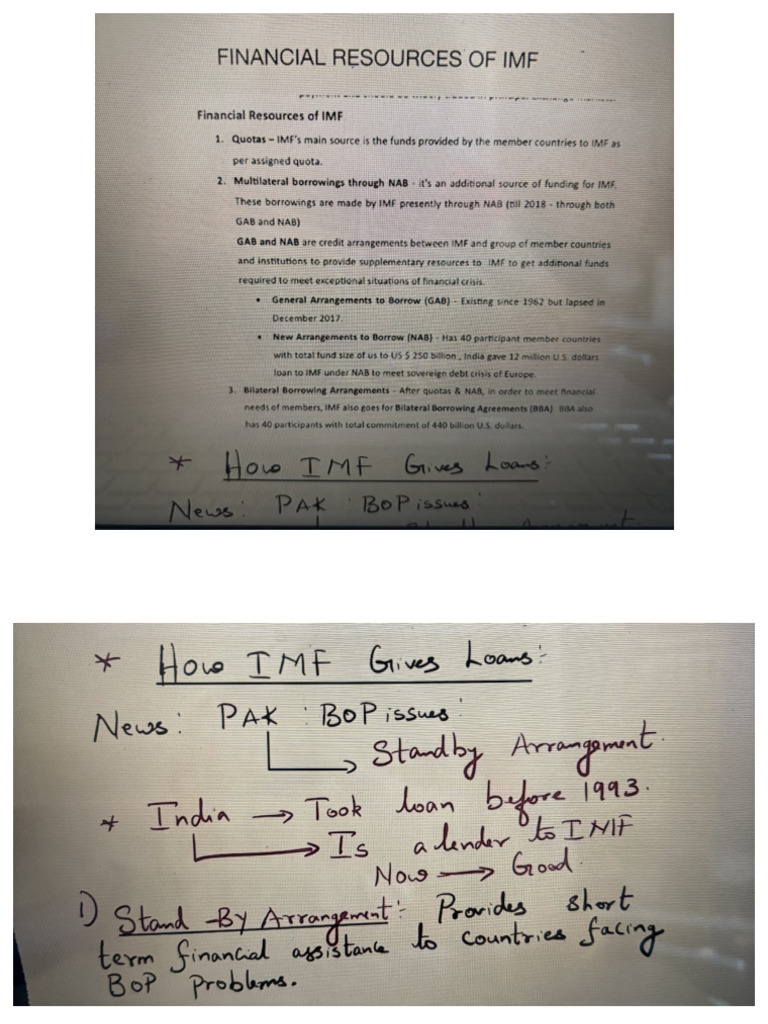 FINANCIAL RESOURCES OF IMF
Financial Resources of IMF
1. Quotas – IMF's main source is the funds provided by the member countries to IMF as
per assigned quota.
2. Multilateral borrowings through NAB - it's an additional source of funding for IMF.
These borrowings are made by IMF presently through NAB (till 2018 - through both
GAB and NAB)
GAB and NAB are credit arrangements between IMF and group of member countries
and institutions to provide supplementary resources to IMF to get additional funds
required to meet exceptional situations of financial crisis.
• General Arrangements to Borrow (GAB) - Existing since 1962 but lapsed in
December 2017.
• New Arrangements to Borrow (NAB) - Has 40 participant member countries
with total fund size of us to US $ 250 billion , India gave 12 million U.S. dollars
loan to IMF under NAB to meet sovereign debt crisis of Europe.
3. Bilateral Borrowing Arrangements - After quotas & NAB, in order to meet financial
needs of members, IMF also goes for Bilateral Borrowing Agreements (BBA) BBA also
has 40 participants with total commitment of 440 billion U.S. dollars.
* How IMF Gives Loans:-
News: PAK : BoP issues
* How IMF Gives Loans:-
News: PAK : BoP issues
Standby Arrangement.
* India → Took loan before 1993.
Is a lender to IMF
Now → Good.
1) Stand -By Arrangement:- Provides short
term financial assistance to countries facing
BoP problems.